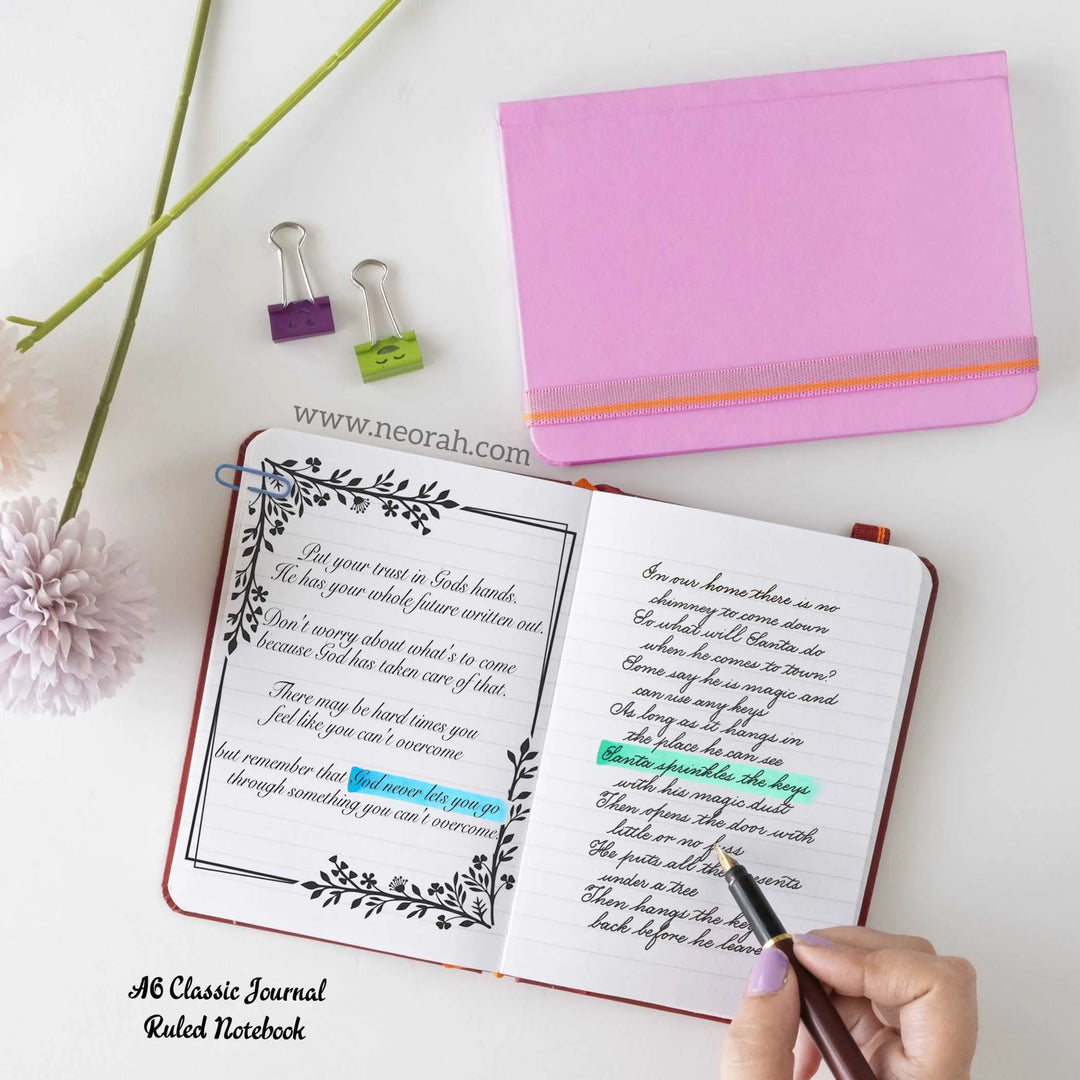 www.neorah.com
Put your trust in Gods hands.
He has your whole future written out.
Don't worry about what's to come
because God has taken care of that.
There may be hard times you
feel like you can't overcome
but remember that God never lets you go
through something you can't overcome.
In our home there is no
chimney to come down
So what will Santa do
when he comes to town?
Some say he is magic and
can use any keys
As long as it hangs in
the place he can see
Santa sprinkles the keys
with his magic dust
Then opens the door with
little or no fuss
He puts all the presents
under a tree
Then hangs the
back before he
A6 Classic Journal
Ruled Notebook